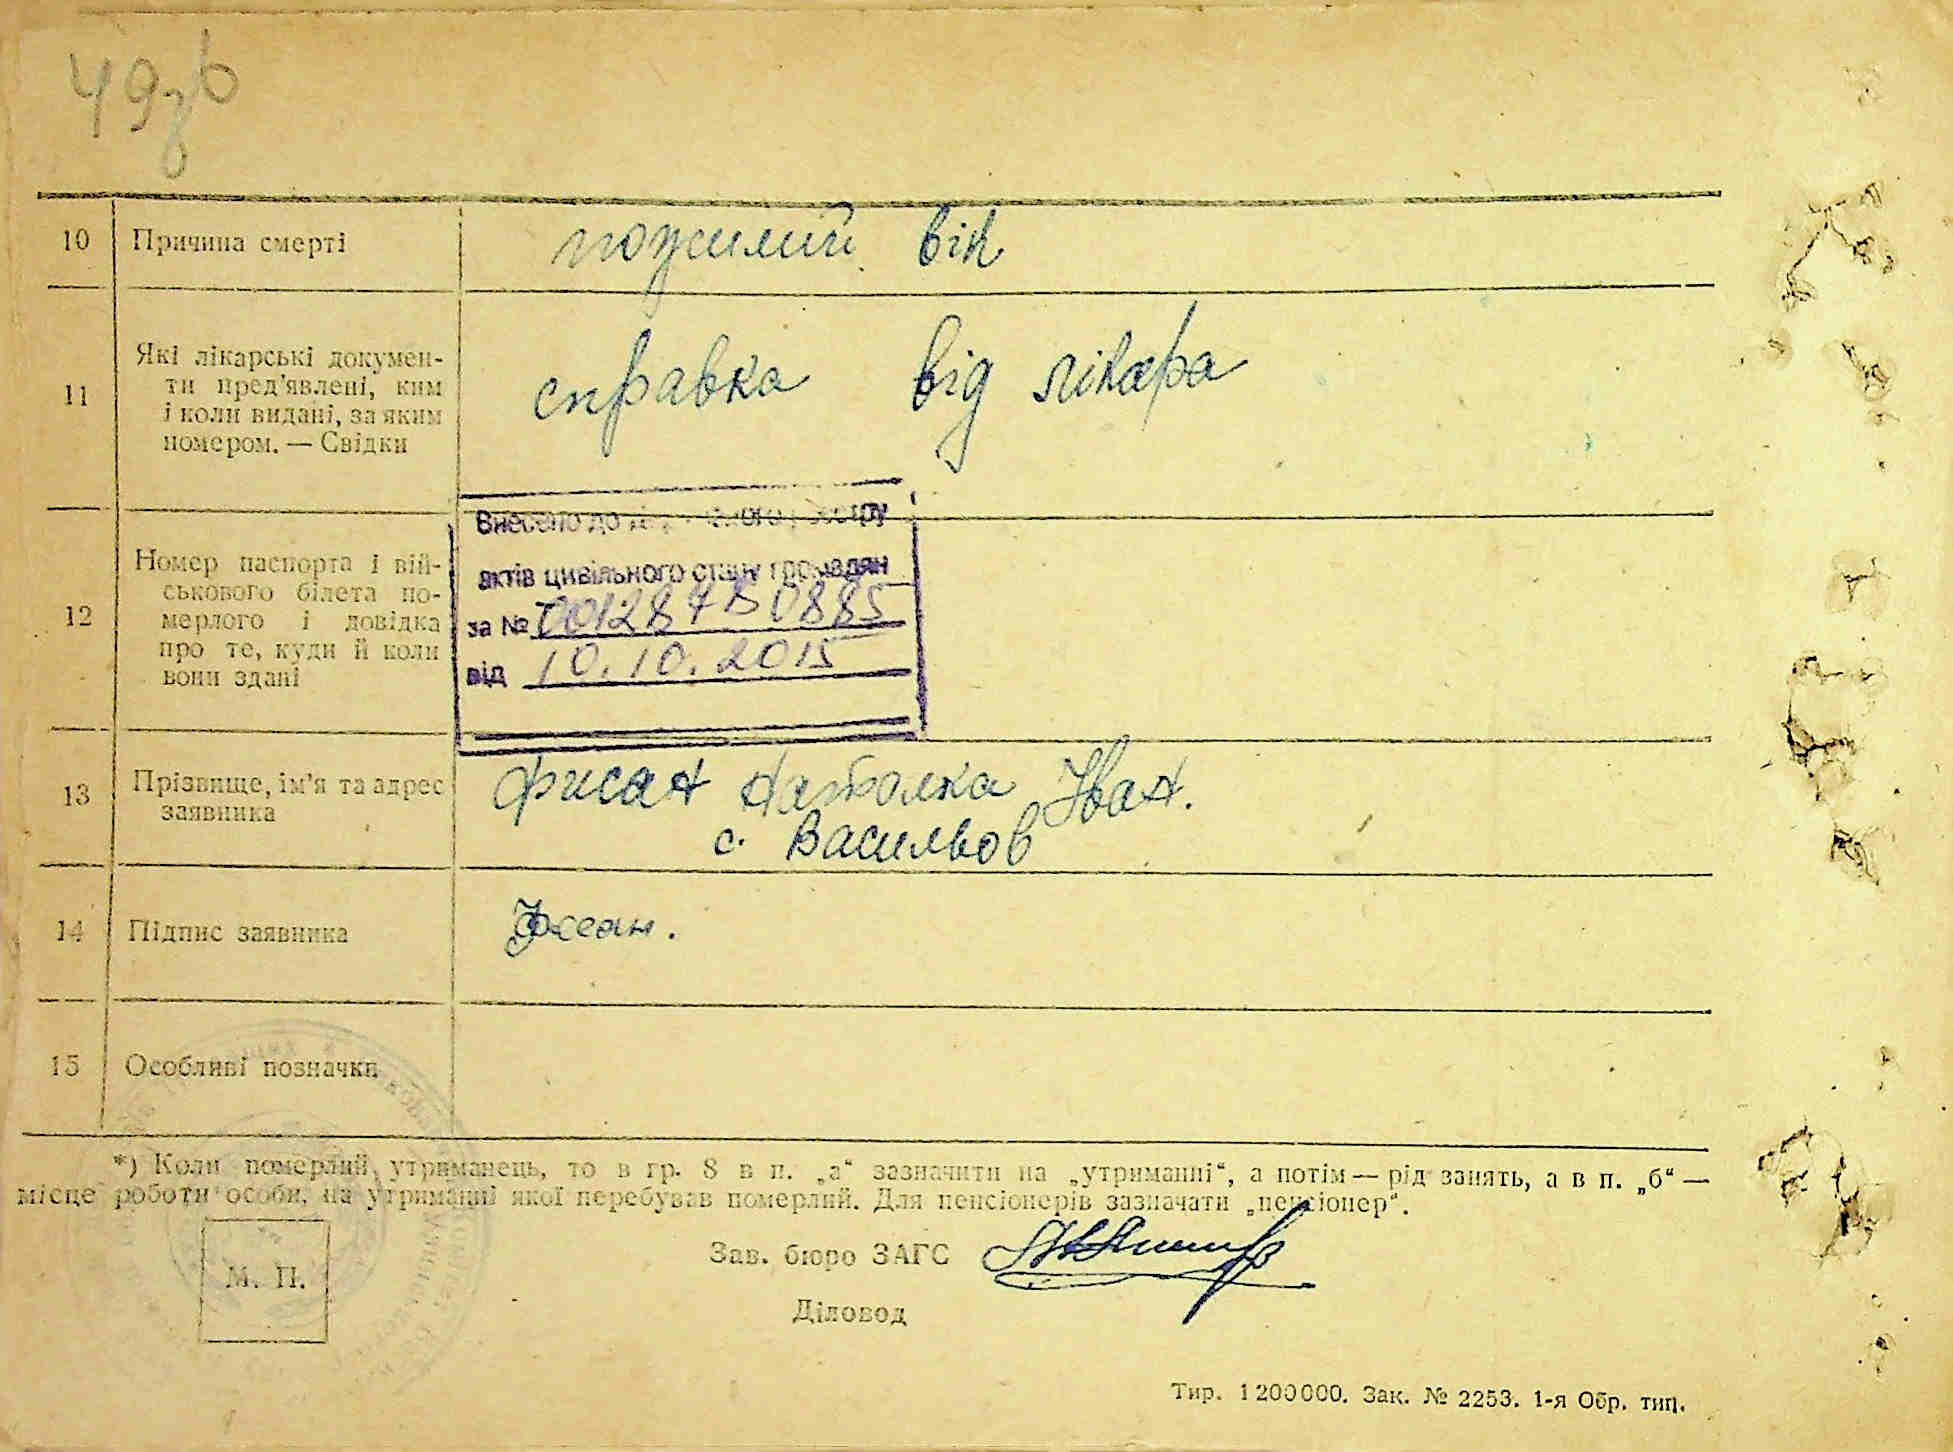 49зв
10 Причина смерті похилий вік
11 Які лікарські докумен-
ти пред'явлені, ким
і коли видані, за яким
номером. — Свідки
справка від лікаря
12 Номер паспорта і вій-
ськового білета по-
мерлого і довідка
про те, куди й коли
вони здані
Внесено до реєстру
актів цивільного стану громадян
за №
від 10.10.2015
13 Прізвище, ім'я та адрес
заявника
Фисан Наталка Іван.
с. Васильов
14 Підпис заявника
15 Особливі позначки
*) Коли померлий утриманець, то в гр. 8 в п. „а“ зазначити на „утриманні“, а потім — рід занять, а в п. „б“ —
місце роботи особи, на утриманні якої перебував померлий. Для пенсіонерів зазначати „пенсіонер“.
Зав. бюро ЗАГС
М. П.
Діловод
Тир. 1200000. Зак. № 2253. 1-я Обр. тип.